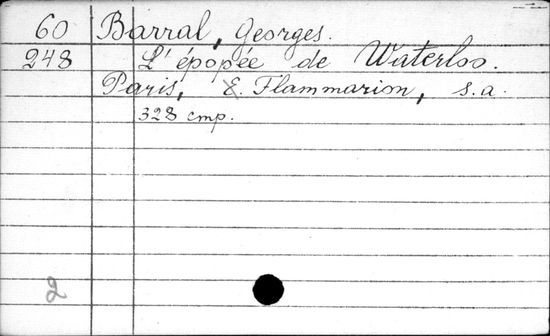 60 Barral, Georges.
248 L'épopée de Waterloo.
Paris, E. Flammarion, s.a.
328 стр.
2